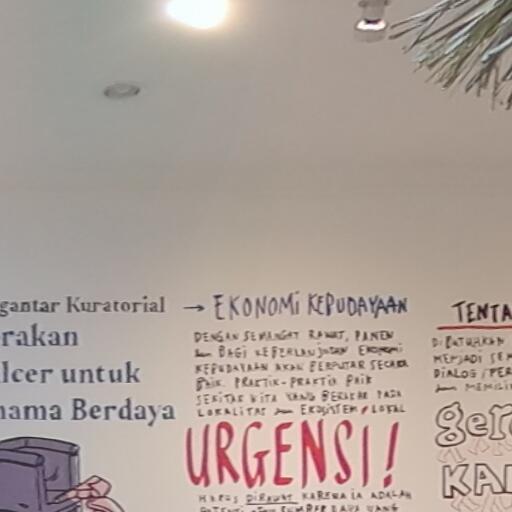 gantar Kuratorial
rakan
lcer untuk
nama Berdaya
→ EKONOMI KEBUDAYAAN
DENGAN SEMANGAT RAWAT, PANEN
dan BAGI KEBERLANJUTAN EKONOMI
KEBUDAYAAN AKAN BERPUTAR SECARA
BAIK. PRAKTIK-PRAKTIK BAIK
SEKITAR KITA YANG BERAKAR PADA
LOKALITAS dan EKOSISTEM LOKAL
URGENSI!
HARUS DIRAWAT KARENA IA ADALAH
TENTA
DIBUTUHKAN
MENJADI SEM
DIALOG/PER
dan MEMILIK
gera
KAL